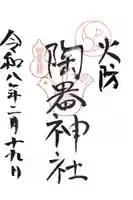 火防
陶器神社
令和八年二月十九日